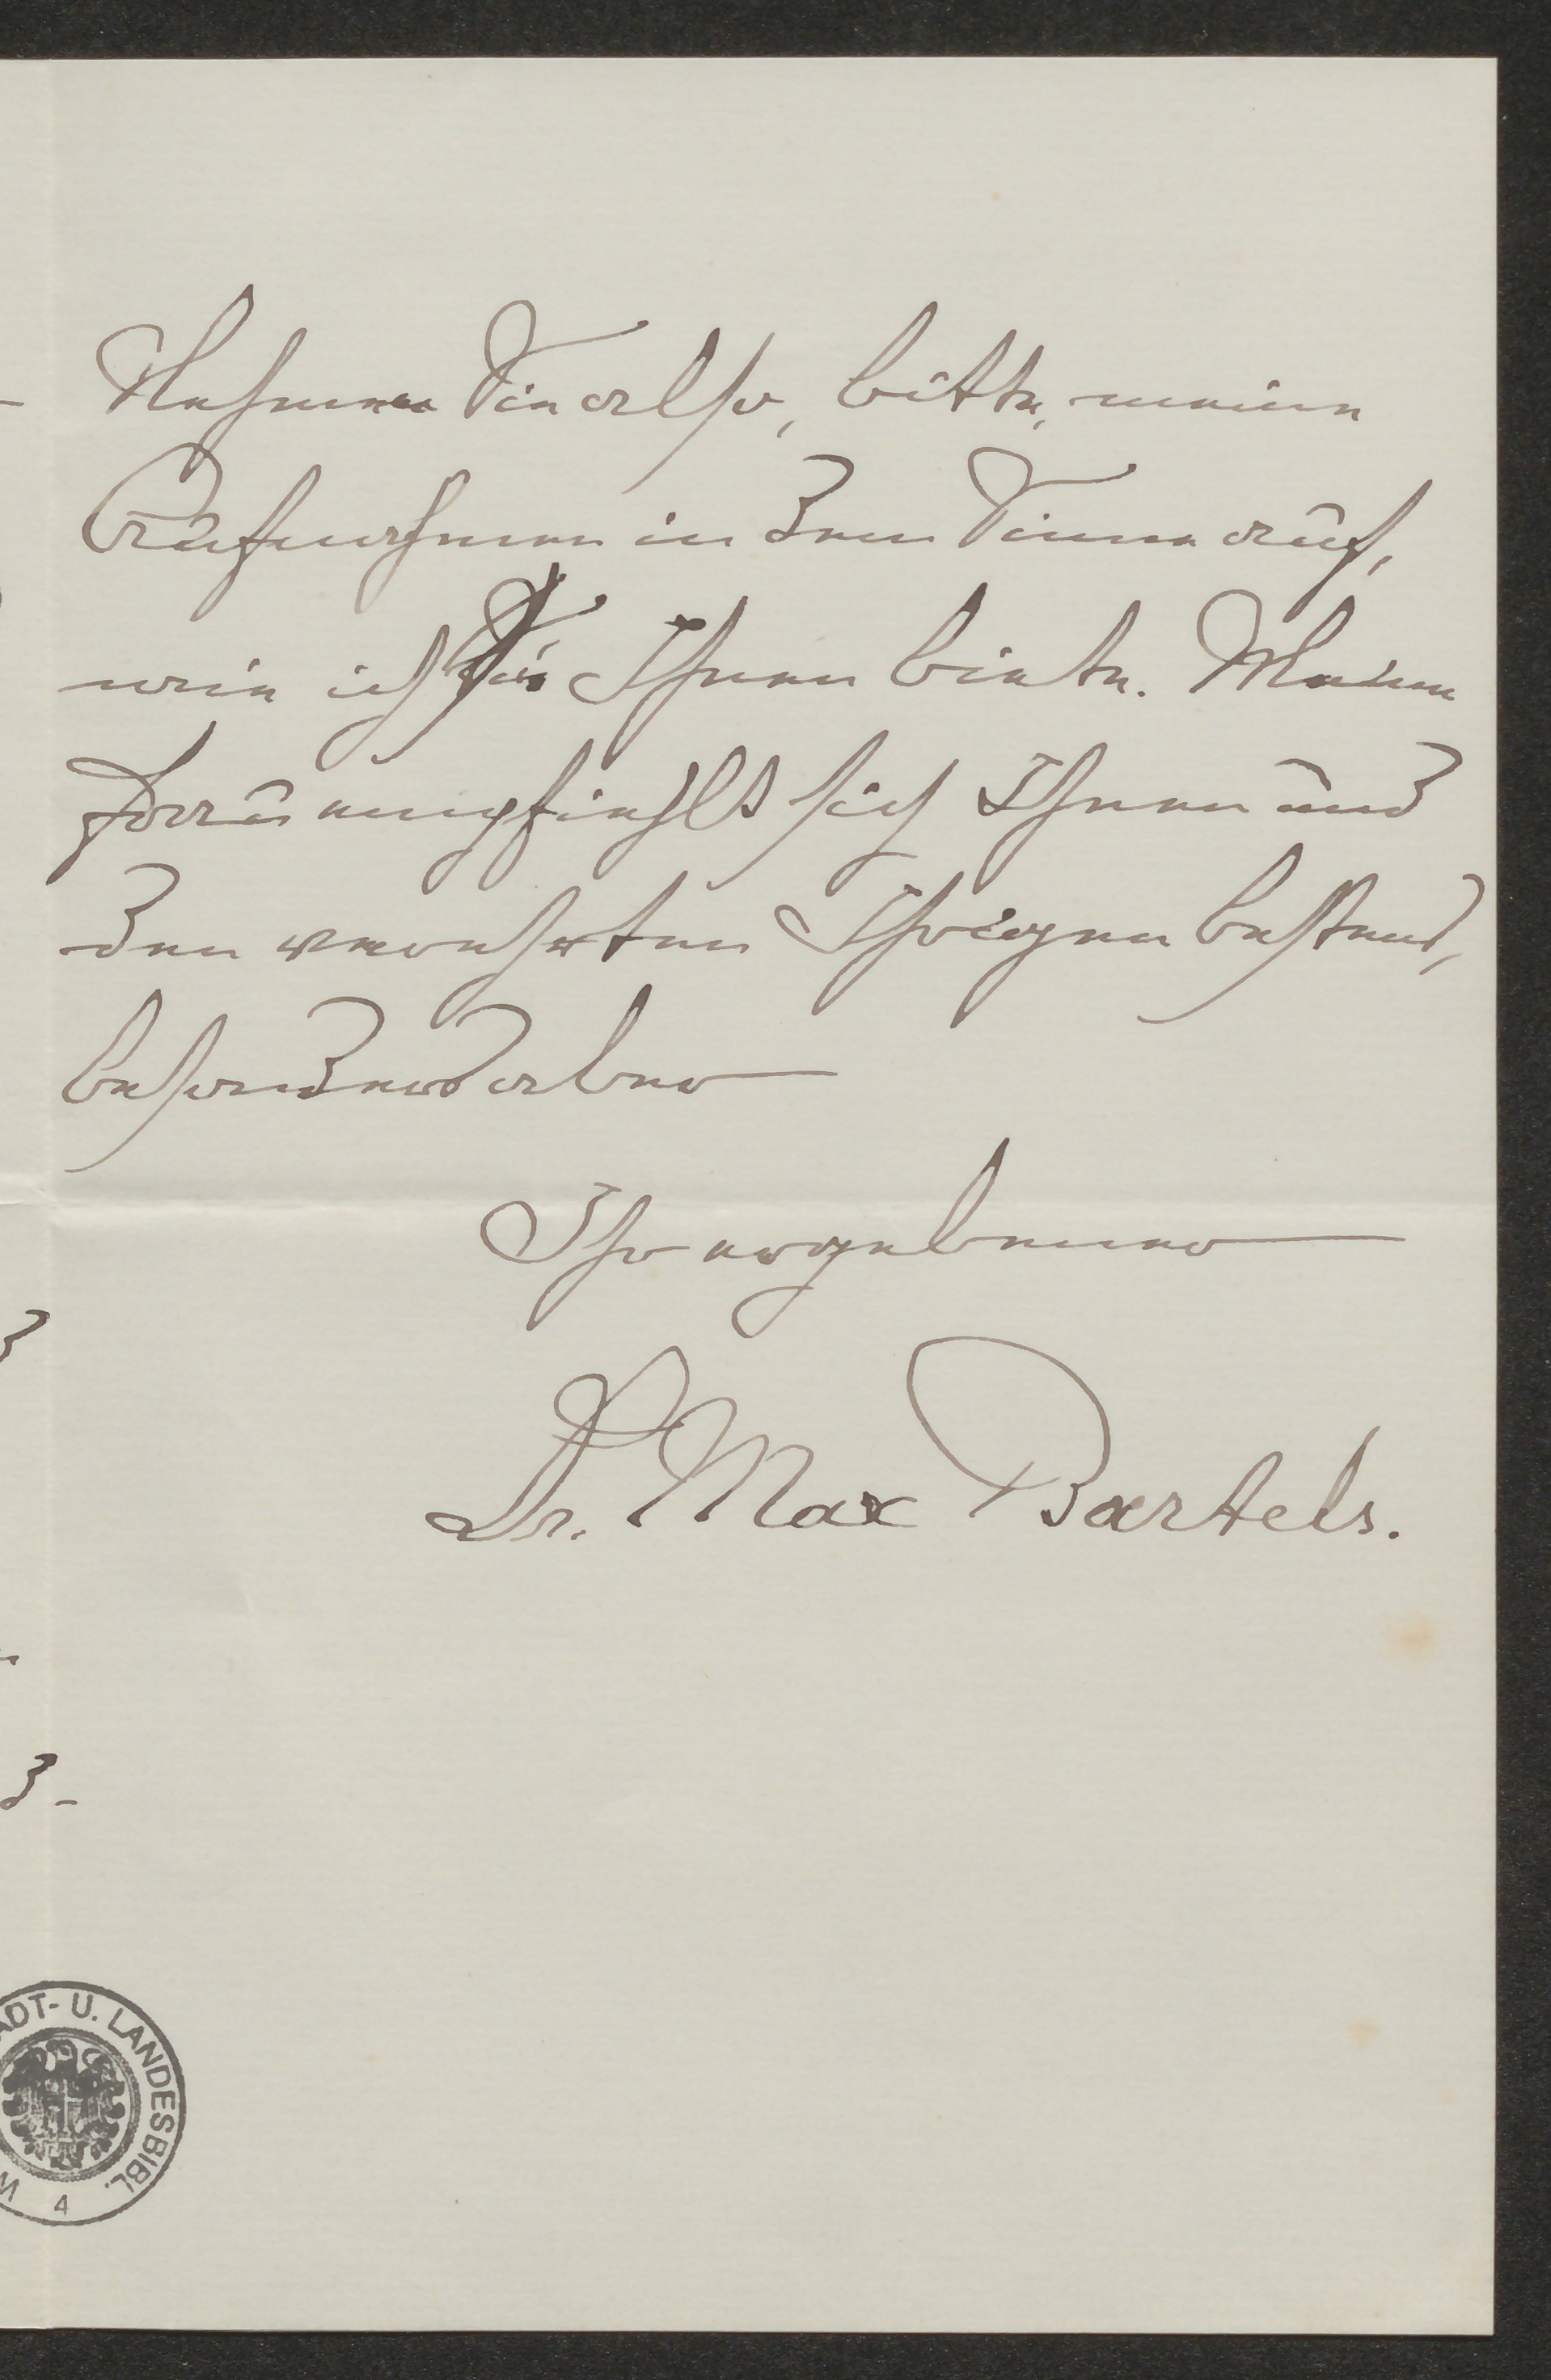 Nehmen Sie also, bitte, meine
Aufnahmen in dem Sinne auf,
wie ich sie Ihnen biete. Meine
Frau empfiehlt sich Ihnen und
den verehrten Ihrigen bestens,
besonders aber
Ihr ergebener
Dr. Max Bartels.
ADT- U. LANDESBIBL.
4